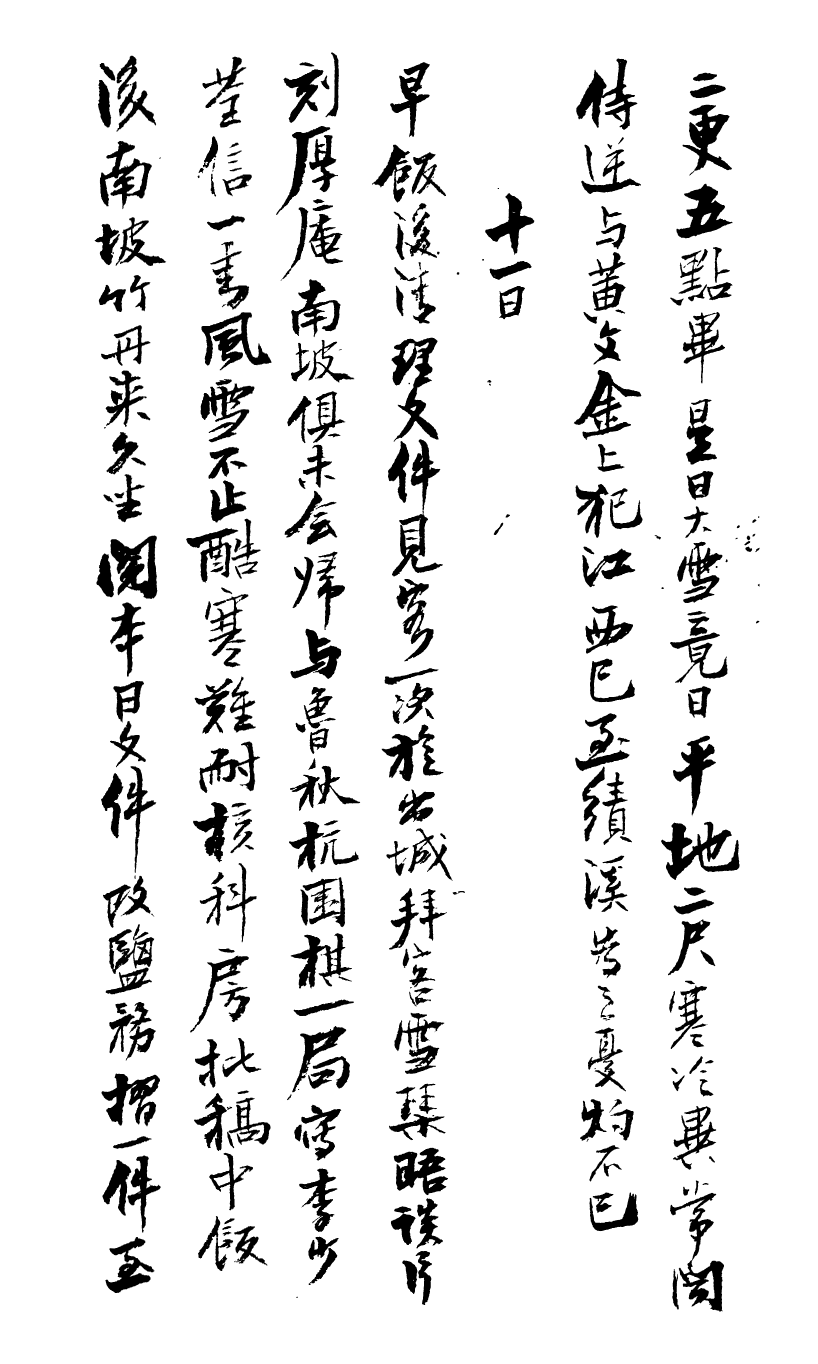 二更五點畢是日大雪竟日平地二尺寒冷異常聞
侍逆与黃文金上犯江西已至績溪為之憂灼不已
十一日
早飯後清理文件見客一次旋出城拜客雪琴晤談片
刻厚庵南坡俱未会歸与魯秋杭围棋一局寫李少
荃信一書風雪不止酷寒難耐核科房批稿中飯
後南坡竹丹来久坐閱本日文件改鹽務摺一件至